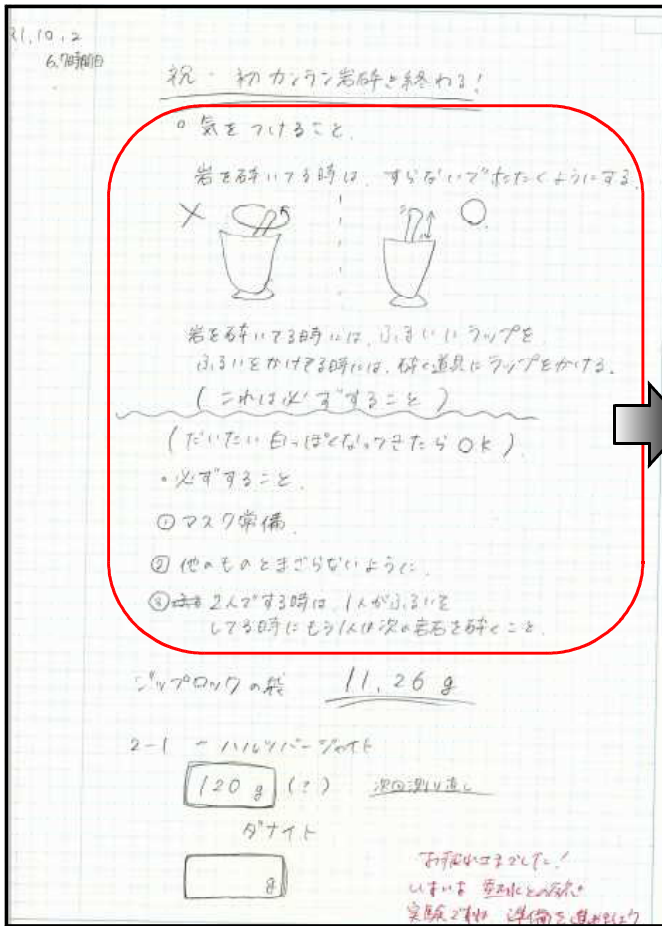 31.10.2
6.7時間目
祝・初カンラン岩砕き終わる!
◦気をつけること.
岩を砕いてる時は、すらないでたたくようにする.
× ○
岩を砕いてる時には、ふるいにラップを
ふるいをかけてる時には、砕く道具にラップをかける.
(これは必ずすること)
(だいたい白っぽくなってきたらOK)
・必ずすること.
①マスク常備.
②他のものとまざらないように.
③2人でする時は、1人がふるいを
してる時にもう1人は次の岩石を砕くこと.
ジップロックの袋 11.26 g
2-1 - ハルツバージャイト
120 g (?) 次回測り直し
ダナイト
g
お疲れさまでした!
いよいよ 熱水との
実験ですね. 準備を進めましょう